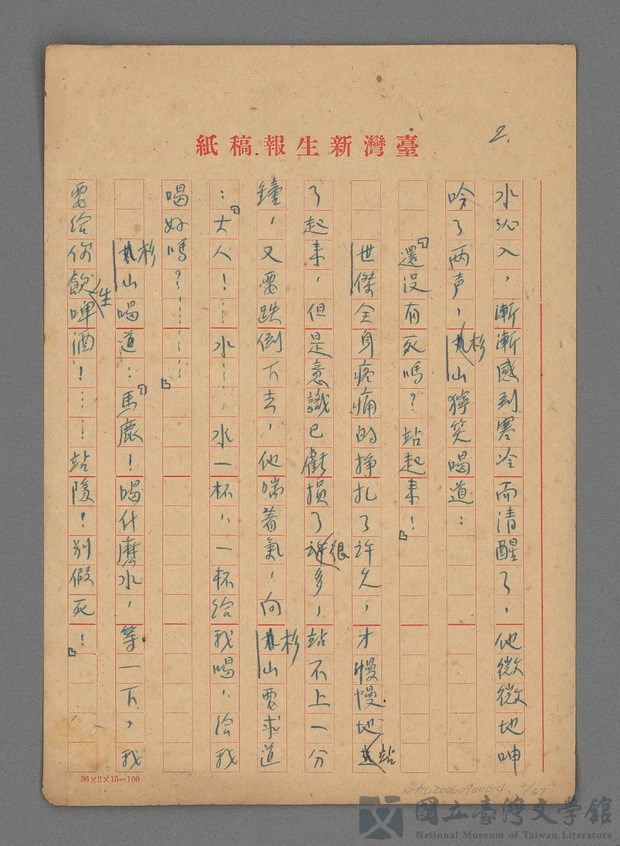 2.
紙稿報生新灣臺
水沁入，漸漸感到寒冷而清醒了，他微微地呻
吟了两声，杉山獰笑喝道：
「還没有死嗎？站起来！」
世傑全身疼痛的掙扎了許久，才慢慢地站
了起来，但是意識已虧損了很多，站不上一分
鐘，又要跌倒下去，他喘着氣，向杉山要求道
：「大人！……水……水一杯，一杯给我喝，给我
喝好嗎？…………」
杉山喝道：「馬鹿！喝什麽水，等一下，我
要给你飲啤酒！……站後！别假死！」
生
36×2×15=100
NMTL20060900014 2/67
國立臺灣文学館
National Museum of Taiwan Literature